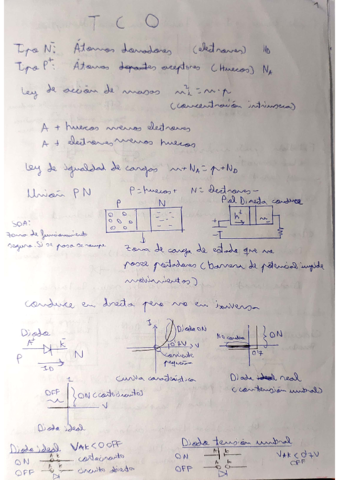 T C O
Tipo N⁻: Átomos donadores (electrones) Nb
Tipo P⁺: Átomos aceptores (Huecos) NA
Ley de acción de masas n²i = n · p
(concentración intrínseca)
A + huecos menos electrones
A + electrones menos huecos
Ley de igualdad de cargas n + NA = p + ND
Unión PN P = huecos + N = electrones -
P N
Pol Directa conduce
h⁺
SOA:
Zona de funcionamiento
segura. Si se pasa se rompe
Zona de carga de estado que no
posee portadores (barrera de potencial impide
movimientos)
Conduce en directa pero no en inversa
Diodo
A⁺ K⁻
P N
ID
I
Diodo ON
0'7V V
corriente
pequeña
curva característica
No conduce
ON
0'7
Diodo real
(con tensión umbral)
OFF
I
ON (cortocircuito)
V
Diodo ideal
Diodo ideal VAK<0 OFF
ON cortocircuito
OFF circuito abierto
Diodo tensión umbral
ON
OFF
VAK<0'7V
OFF